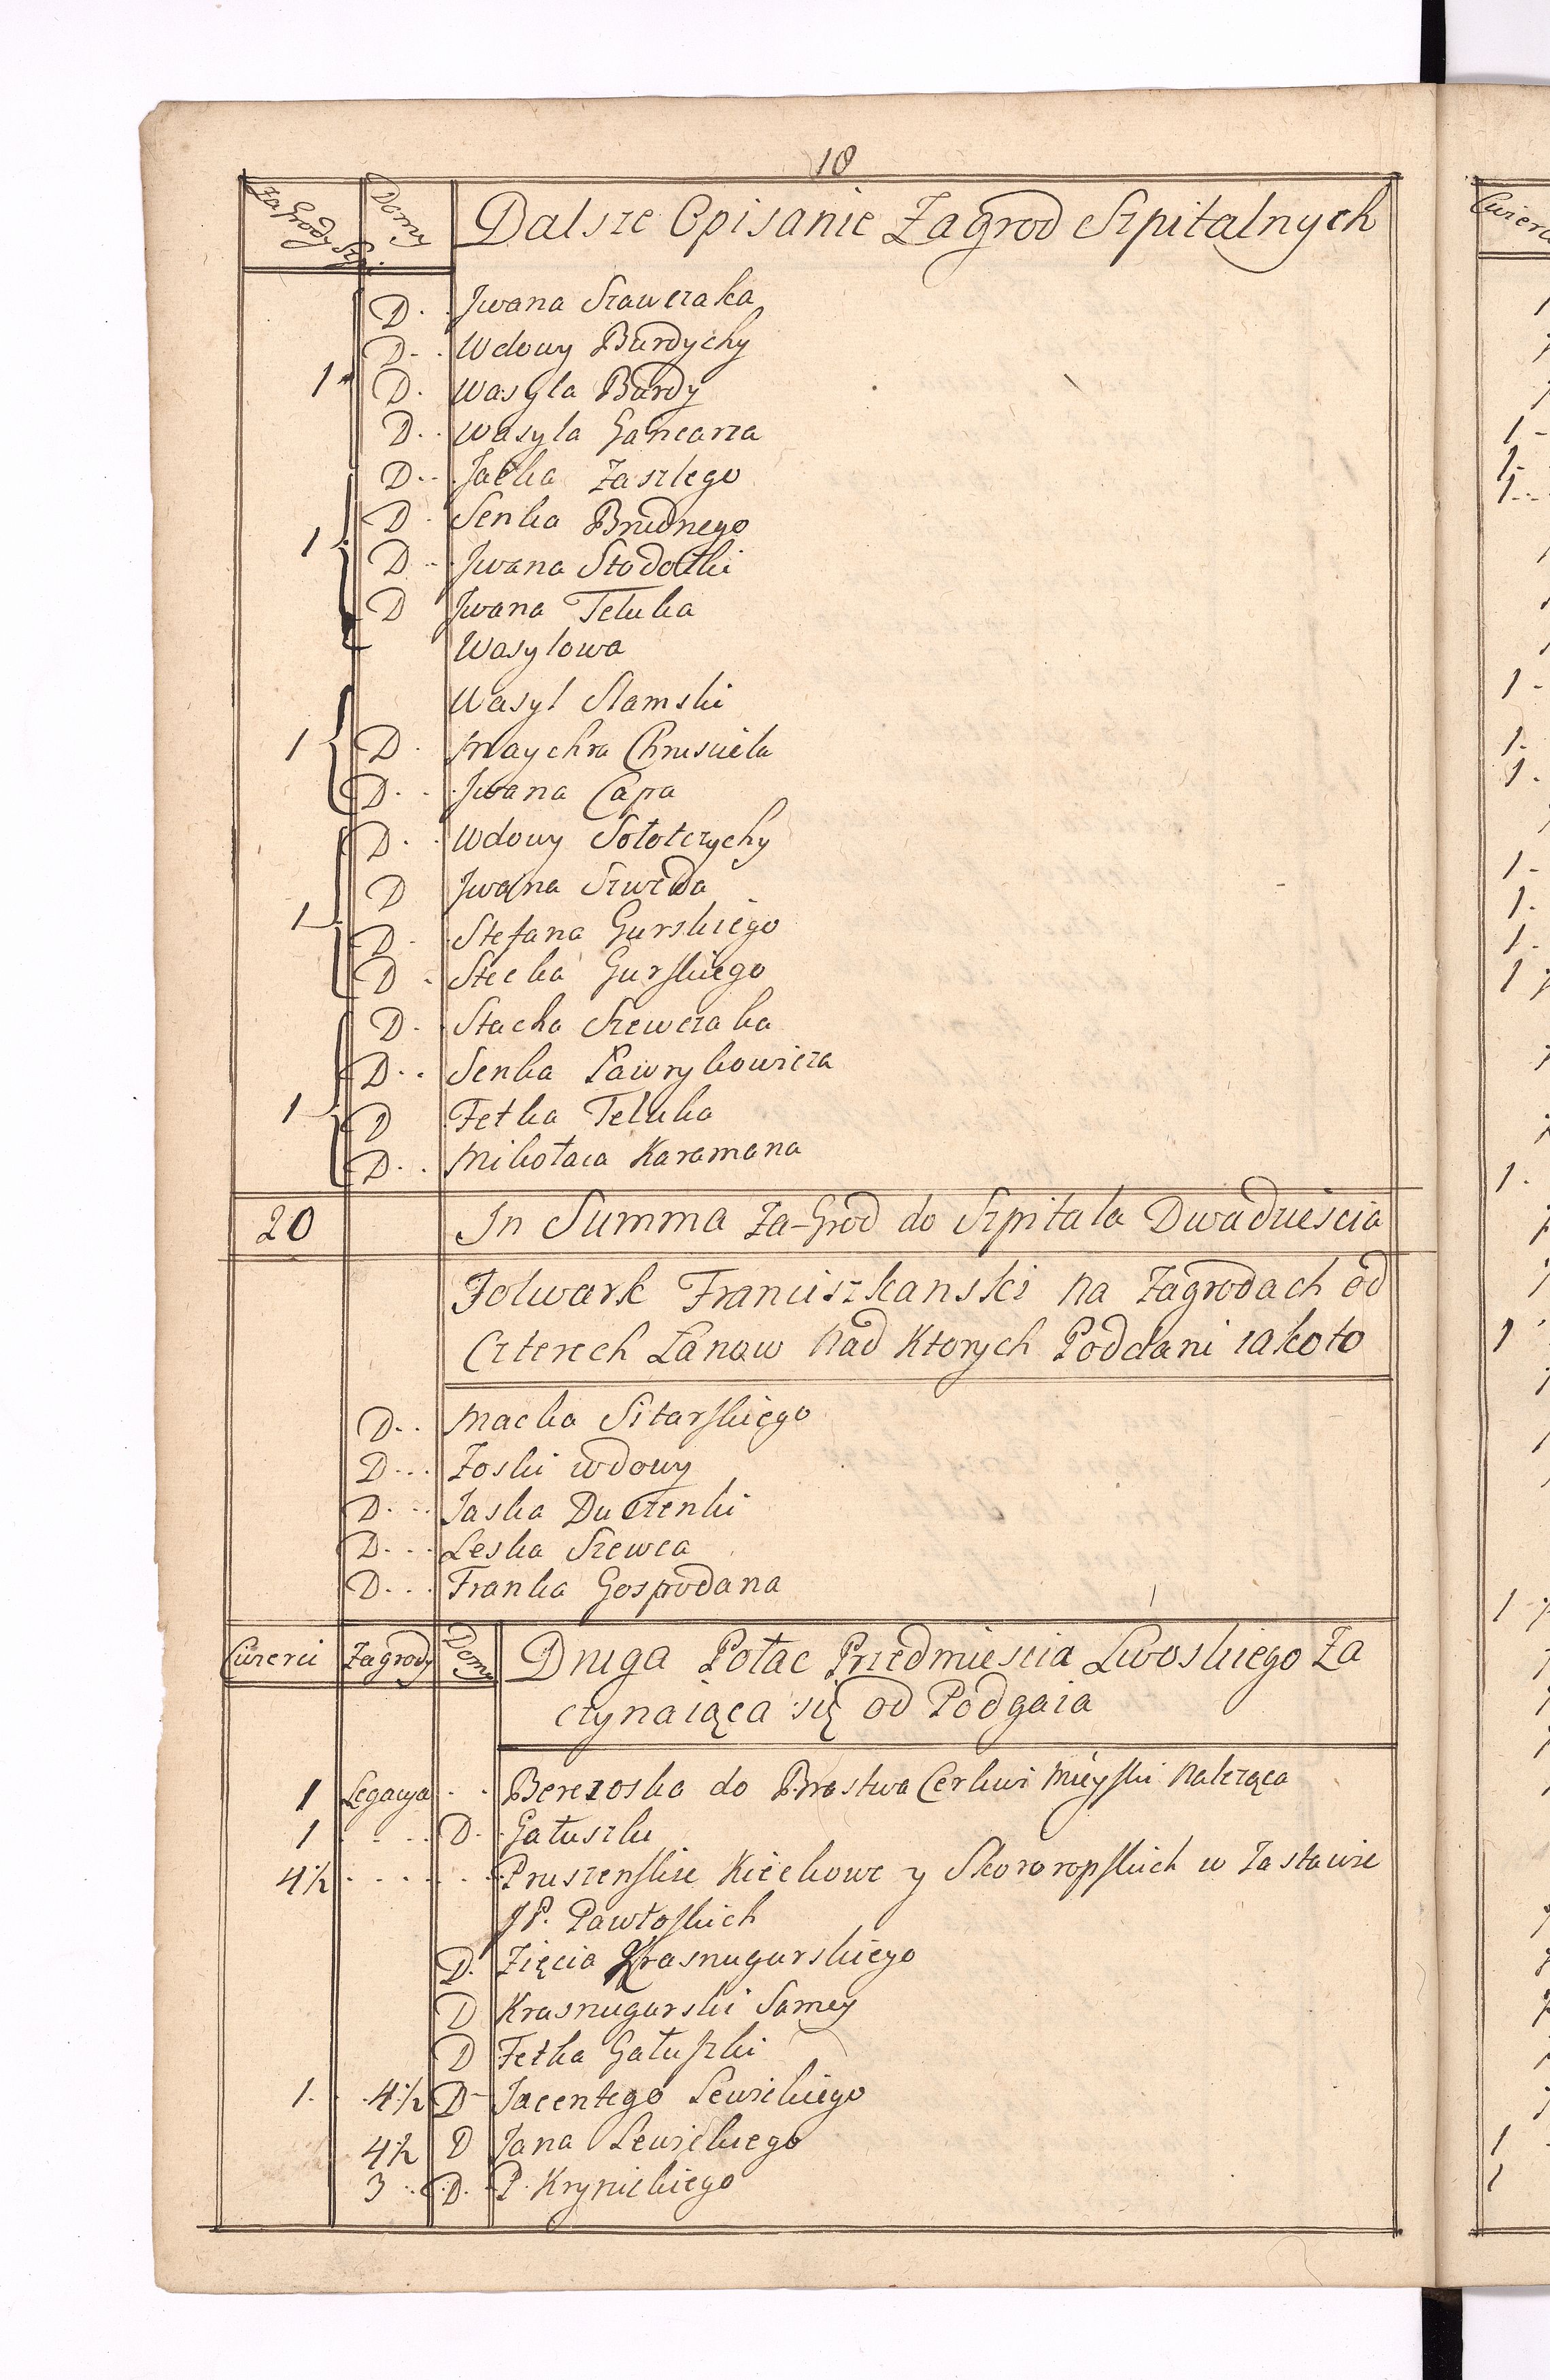 10
Zagrody Szpi. Domy Dalsze Opisanie Zagrod Szpitalnych
D. Jwana Szawczaka
D. Wdowy Burdychy
1 D. Wasyla Burdy
D. Wasyla Gancarza
D. Jacka Zaszlego
D. Senka Brudnego
1 D. Jwana Stodołki
D Jwana Teluka
Wasylowa
Wasyl Slamski
1 D. Maychra Chrusciela
D. Jwana Capa
D. Wdowy Sołotczychy
D Jwana Szweda
1 D. Stefana Gurskiego
D. Stecka Gurskiego
D. Stacha Szewczaka
D. Senka Ławrykowicza
1 D Fetka Teluka
D. Mikołaia Karamana
20 In Summa Za-Grod do Szpitala Dwadziescia
Folwark Franciszkanski na Zagrodach od
Czterech Łanow nad Ktorych Poddani iakoto
D. Macka Sitarskiego
D. Zoski wdowy
D. Jaska Duczenki
D. Leska Szewca
D. Franka Gospodana
Cwierci Zagrody Domy Druga Połac Przedmiescia Lwoskiego Za
czynaiąca się od Podgaia
1 Legacya Berezoska do Brastwa Cerkwi Mieyski należąca
1 D. Gałuszki
4½ Pruszenskie Kieckowe y Skororopskich w Zastawie
JP. Pawłoskich
D. Zięcia Krasnugurskiego
D Krasnugurski Samey
D Fetka Gałuszki
1. 4½ D Jacentego Lewickiego
4½ D Jana Lewickiego
3 D. P. Krynickiego